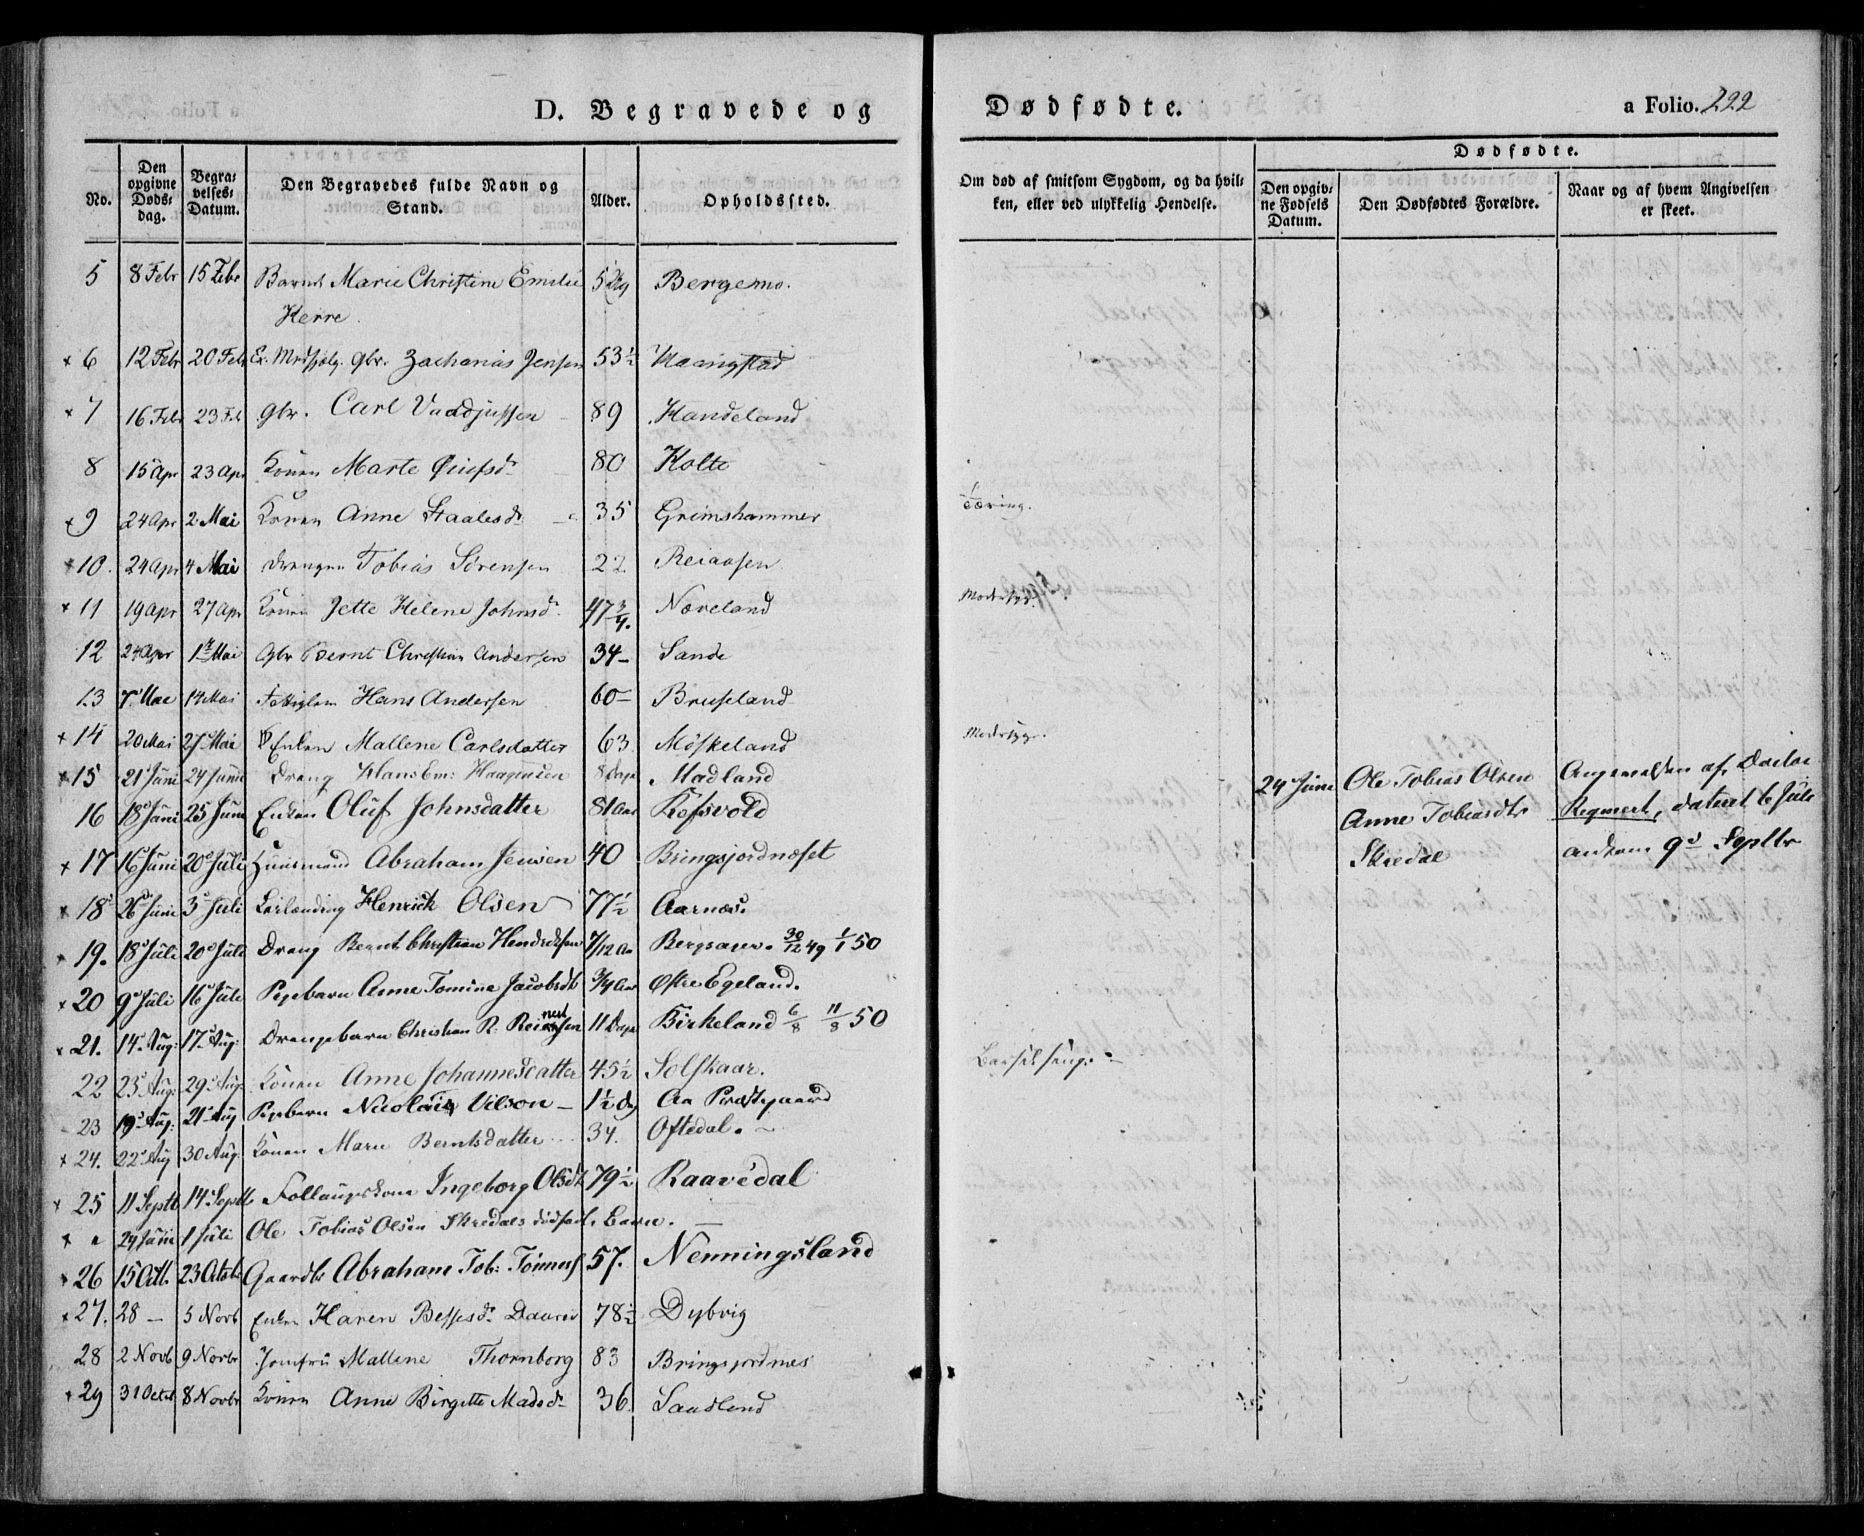 D. Begravede og
Dødfødte.
a Folio. 222
No.
Den opgivne Døds-dag.
Begra-velses-Datum.
Den Begravedes fulde Navn og Stand.
Alder.
Opholdssted.
Om død af smitsom Sygdom, og da hvil-ken, eller ved ulykkelig Hendelse.
Dødfødte.
Den opgiv-ne Fødsels Datum.
Den Dødfødtes Forældre.
Naar og af hvem Angivelsen er skeet.
5 8 Febr 15 Febr Barnet Marie Christine Emilie Herre. Bergemo.
6 12 Febr 20 Feb gbr. Zacharias Jensen 53½ Haangstad
7 16 Febr 23 Feb gbr. Carl 89 Handeland
8 15 Apr 23 Apr Konen Marte 80 Holte
9 24 Apr 2 Mai Konen Anne Staalesd 35 Grimshammer Tæring.
10. 24 Apr 4 Mai drengen Tobias Sørensen 22 Reiaasen
11 19 Apr 27 Apr Konen Jette Helene Johnsd. 47 3/4. Næveland
12 24 Apr 1 Mai Gbr Bernt Christian Andersen 34 - Sande
13 7 Mai 14 Mai Fattiglem Hans Andersen 60 - Bruseland
14 20 Mai 27 Mai Enken Mallene Carlsdatter 63 Møskeland
15 21 Juni 24 Juni Dreng Hans Em: Haagensen 8 Dage Madland
24 Juni Ole Tobias Olsen Anne Tobiasdtr Skredal
16 18 Juni 25 Juni Enken Oluf Johnsdatter 81 Aar
17 16 Juni 20 Juli Huusmand Abraham Jensen 40 Bringsjordnæset
18 26 Juni 3 Juli Henrick Olsen 77½ Aarnæs.
19. 18 Juli 20 Juli Dreng Bernt Christian 7/12 Aar 30/12 49 1/1 50
20 9 Juli 16 Juli Pigebarn Anne Tomine Jacobsdt 3/4 Aar Østre Egeland.
21. 14 Aug: 17 Aug: Drengebarn Christian R. 11 Dage Birkeland 6/8 11/8 50
22 23 Aug. 29 Aug. Konen Anne Johannesdatter 45½ Solskaar. Barselseng. -
23 19 Aug: 21 Aug Pigebarn Nicolai Vilson - 1½ Dg Aa Præstegaard
24. 22 Aug 30 Aug. Konen Maren Berntsdatter 34. Oftedal.
25 11 Septb 14 Septb Follaugskone Ingeborg Olsdt 79½ Raavedal
a 24 Juni 1 Juli Ole Tobias Olsen Skredals dødfødt Barn. -
26 15 Octb. 23 Octob Gaardbr Abraham Tob: Tønness 57. Nenningsland
27. 28 - 5 Novb Enke Karen 78½ Dybvig
28 2 Novb 9 Novbr Jomfru Mallene Thornborg 83 Bringsjordnes
29 31 Octob 8 Novbr Konen Anne Birgitte Madsd 36. Sandland